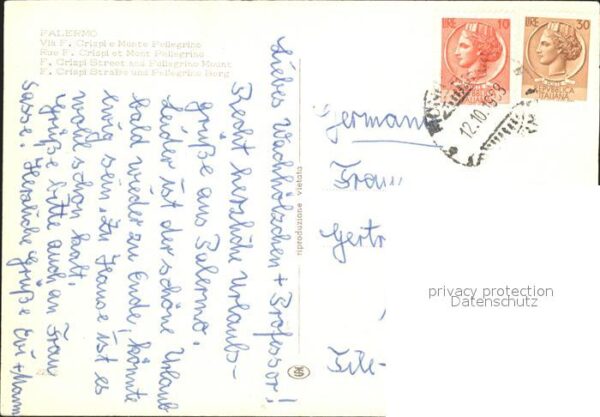 PALERMO
Via F. Crispi e Monte Pellegrino
Rue F. Crispi et Mont Pellegrino
F. Crispi Street and Pellegrino Mount
F. Crispi Straße und Pellegrino Berg
Liebes Wachhölzchen + Professor!
Recht herzliche Urlaubs-
grüße aus Palermo.
Leider ist der schöne Urlaub
bald wieder zu Ende, könnte
ewig sein. Zu Hause ist es
wohl schon kalt.
Grüße bitte auch an Frau
Sasse. Herzliche Grüße Evi +
riproduzione vietata
LIRE 10
REPVBBLICA ITALIANA
LIRE 30
REPVBBLICA ITALIANA
12.10.1968
Germany
Frau
Gertr
privacy protection
Datenschutz